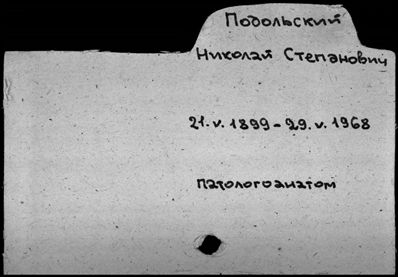 Подольский
Николай Степанович
21.v.1899-29.v.1968
патологоанатом